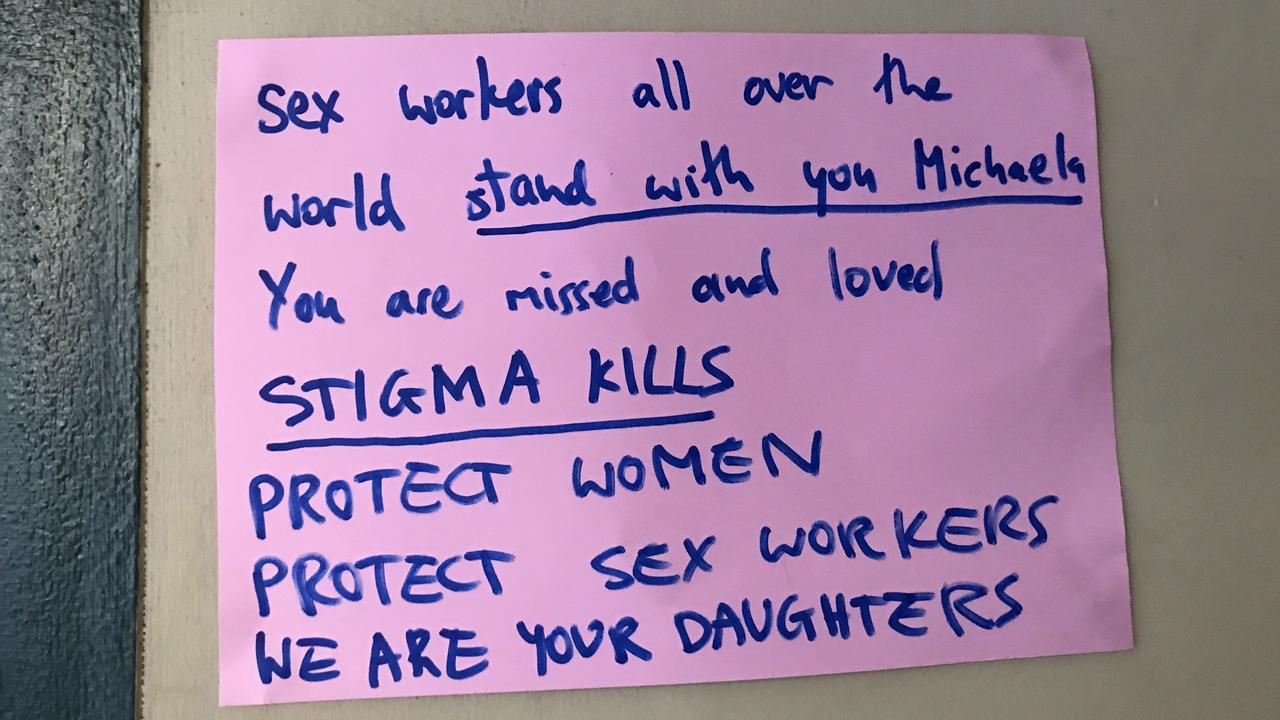 Sex workers all over the
world stand with you Michaela
You are missed and loved
STIGMA KILLS
PROTECT WOMEN
PROTECT SEX WORKERS
WE ARE YOUR DAUGHTERS